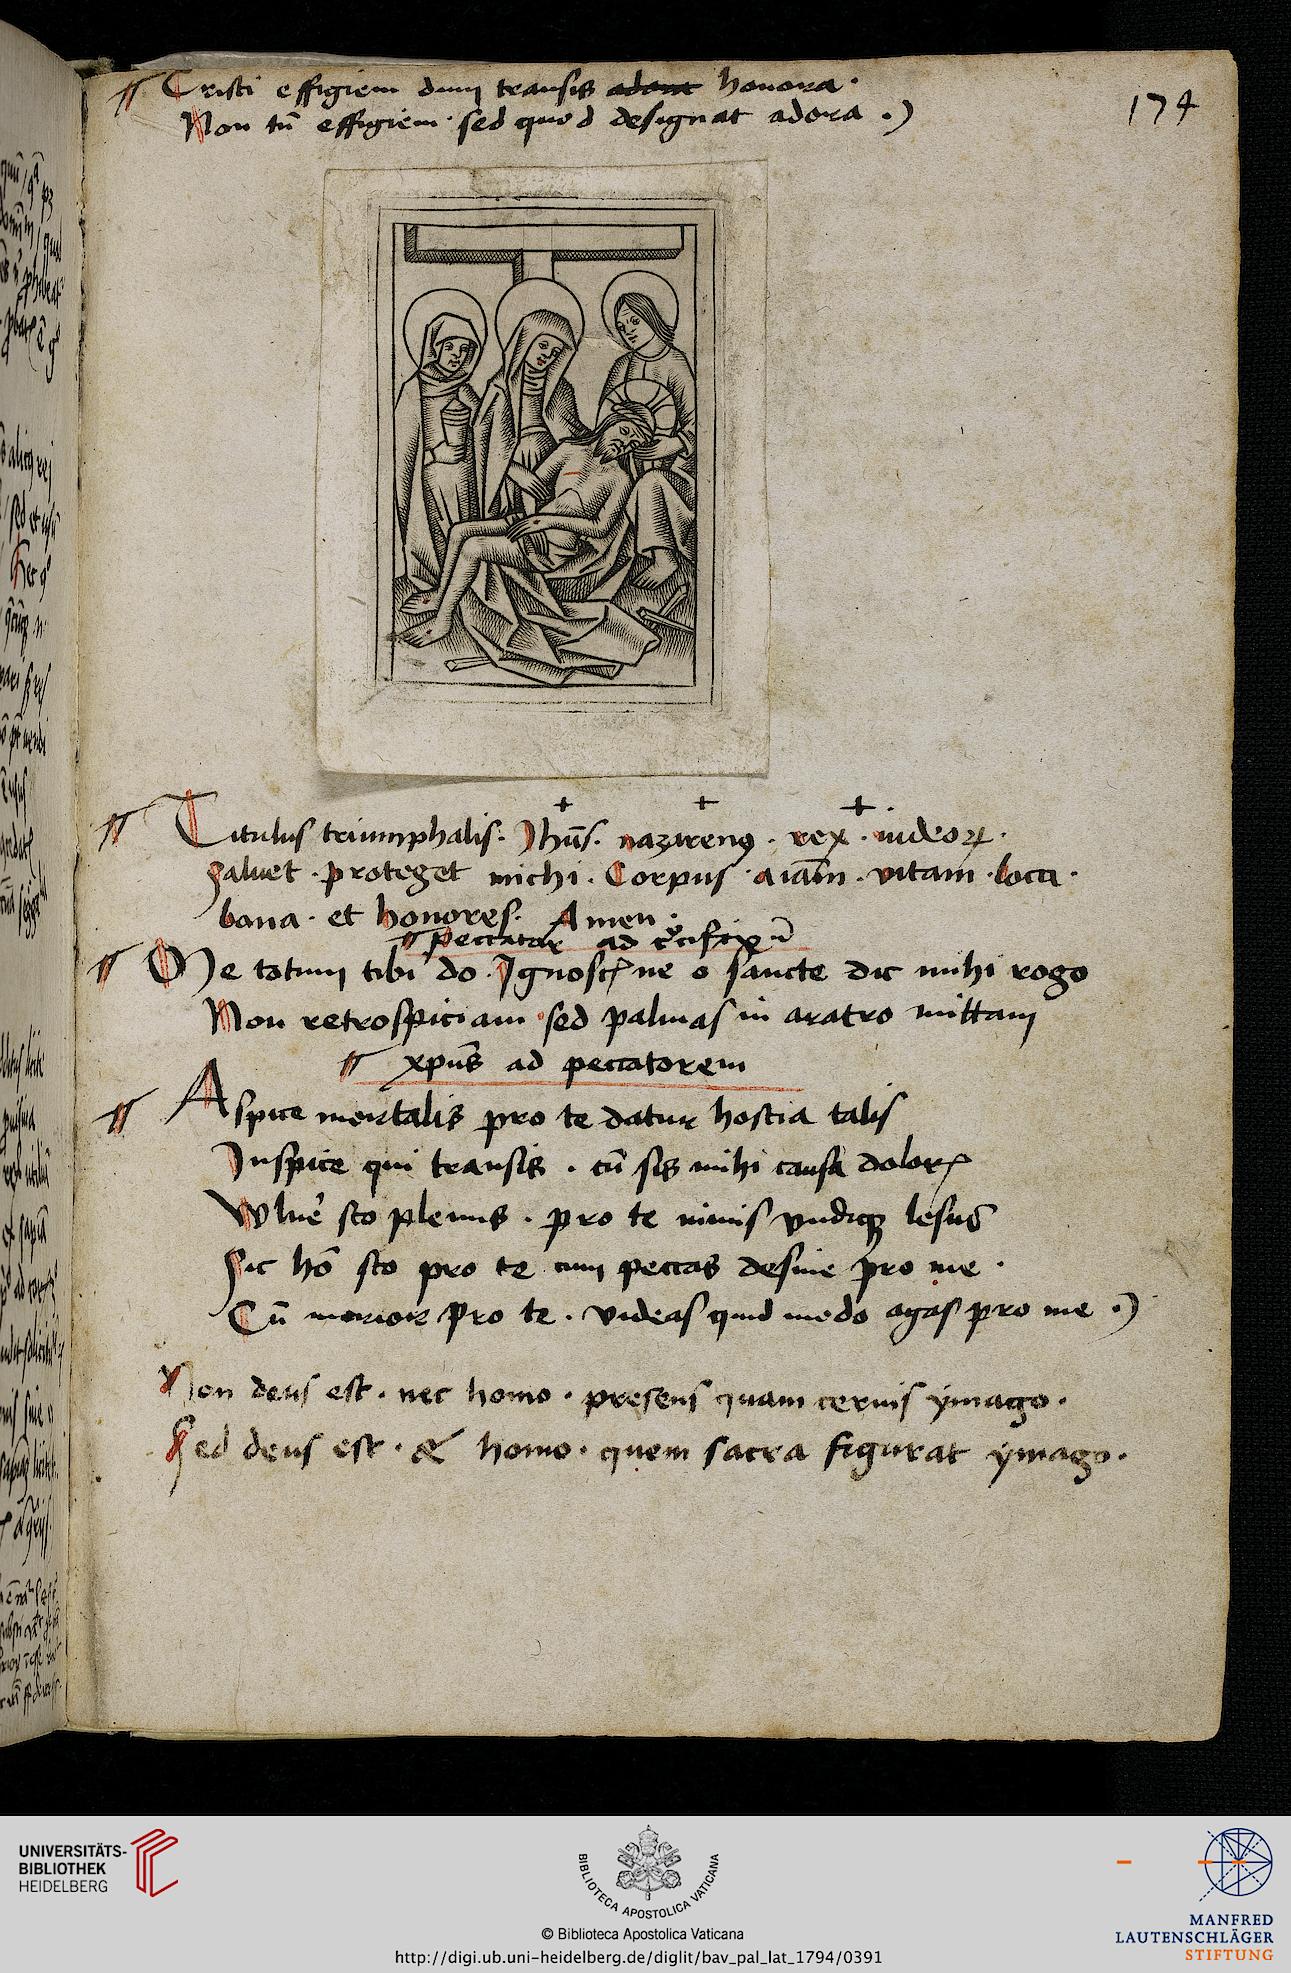 Cristi effigiem dum transis adorat honora.
174
Non tū effigiem sed quod designat adora .)
Titulus triumphalis: Jhūs. nazarenꝰ. rex. iudeoꝝ.
Saluet. proteget michi. Corpus. aīam. vitam. loca.
bona. et honores. Amen.
peccator ad
Me totum tibi do. ne o sancte dic mihi rogo
Non retrospiciam sed palmas in aratro mittam
xpūs ad peccatorem
Aspice mortalis pro te datur hostia talis
Inspice qui transis. cū sis mihi causa
sto plenus. pro te nimis vndiqꝫ
Sic hō sto pro te cum peccas desine pro me.
Cū morior pro te. videas quid modo agas pro me .)
Non deus est. nec homo. presens quam cernis ymago.
Sed deus est. & homo. quem sacra figurat ymago.
UNIVERSITÄTS-
BIBLIOTHEK
HEIDELBERG
BIBLIOTECA APOSTOLICA VATICANA
© Biblioteca Apostolica Vaticana
http://digi.ub.uni-heidelberg.de/diglit/bav_pal_lat_1794/0391
MANFRED
LAUTENSCHLÄGER
STIFTUNG